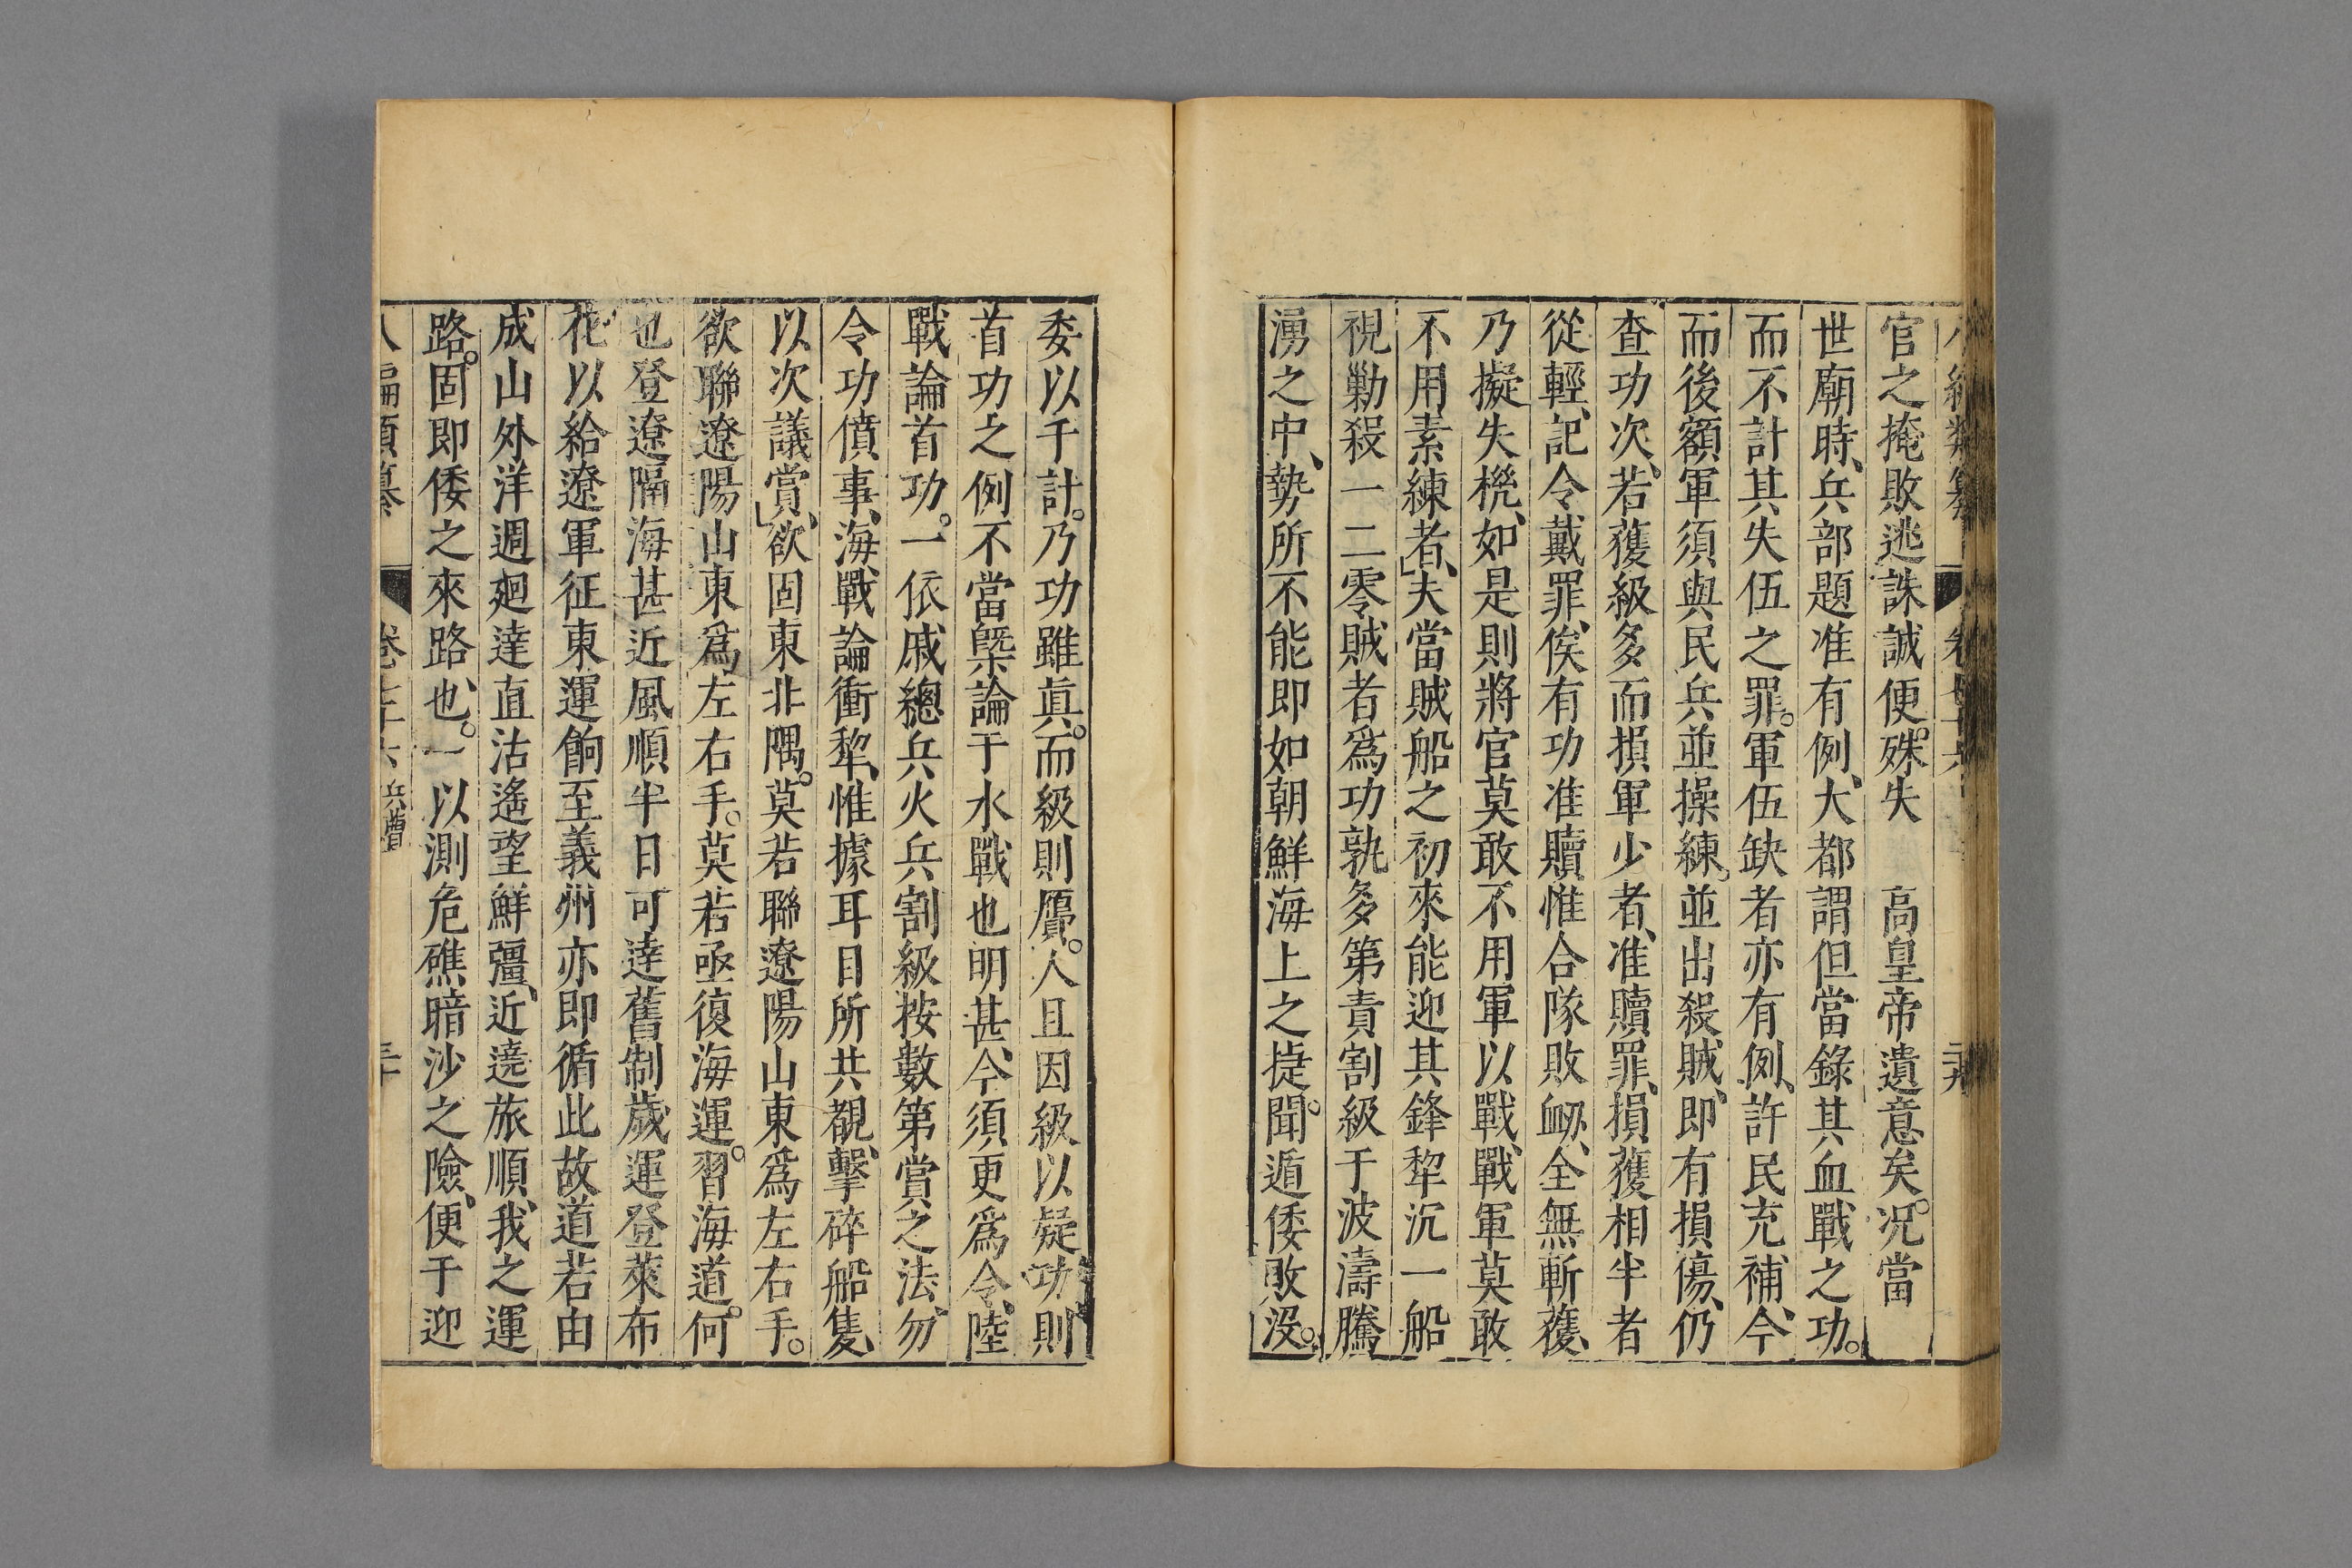 官之掩敗逃誅誠便。殊失　高皇帝遺意矣。况當
世廟時、兵部題准有例、大都謂但當錄其血戰之功。
而不計其失伍之罪。軍伍缺者亦有例、許民充補、今
而後額軍須與民兵並操練。並出殺賊、即有損傷、仍
查功次、若獲級多而損軍少者、准贖罪、損獲相半者
從輕、記令戴罪、俟有功准贖惟合隊敗衂、全無斬獲、
乃擬失機、如是則將官莫敢不用軍以戰、戰軍莫敢
不用素練者」、夫當賊船之初來能迎其鋒犂沉一船
視勦殺一二零賊者爲功孰多第責割級于波濤騰
湧之中、勢所不能即如朝鮮海上之捷。聞遁倭敗沒。
委以千計。乃功雖眞。而級則贋。人且因級以疑功、則
首功之例不當槩論于水戰也明甚、今須更爲令、陸
戰論首功。一依戚總兵火兵割級按數第賞之法、勿
令功僨事、海戰論衝犂、惟據耳目所共覩、擊碎船隻、
以次議賞」、欲固東北隅。莫若聯遼陽山東爲左右手。
欲聯遼陽山東爲左右手。莫若亟復海運。習海道。何
也登遼隔海甚近風順半日可達舊制歲運登萊布
花以給遼軍征東運餉至義州亦即循此故道若由
成山外洋週廻達直沽遙望鮮彊、近遶旅順、我之運
路。固即倭之來路也。一以測危礁暗沙之險、便于迎
八編類纂　卷七十六　兵曹　三十